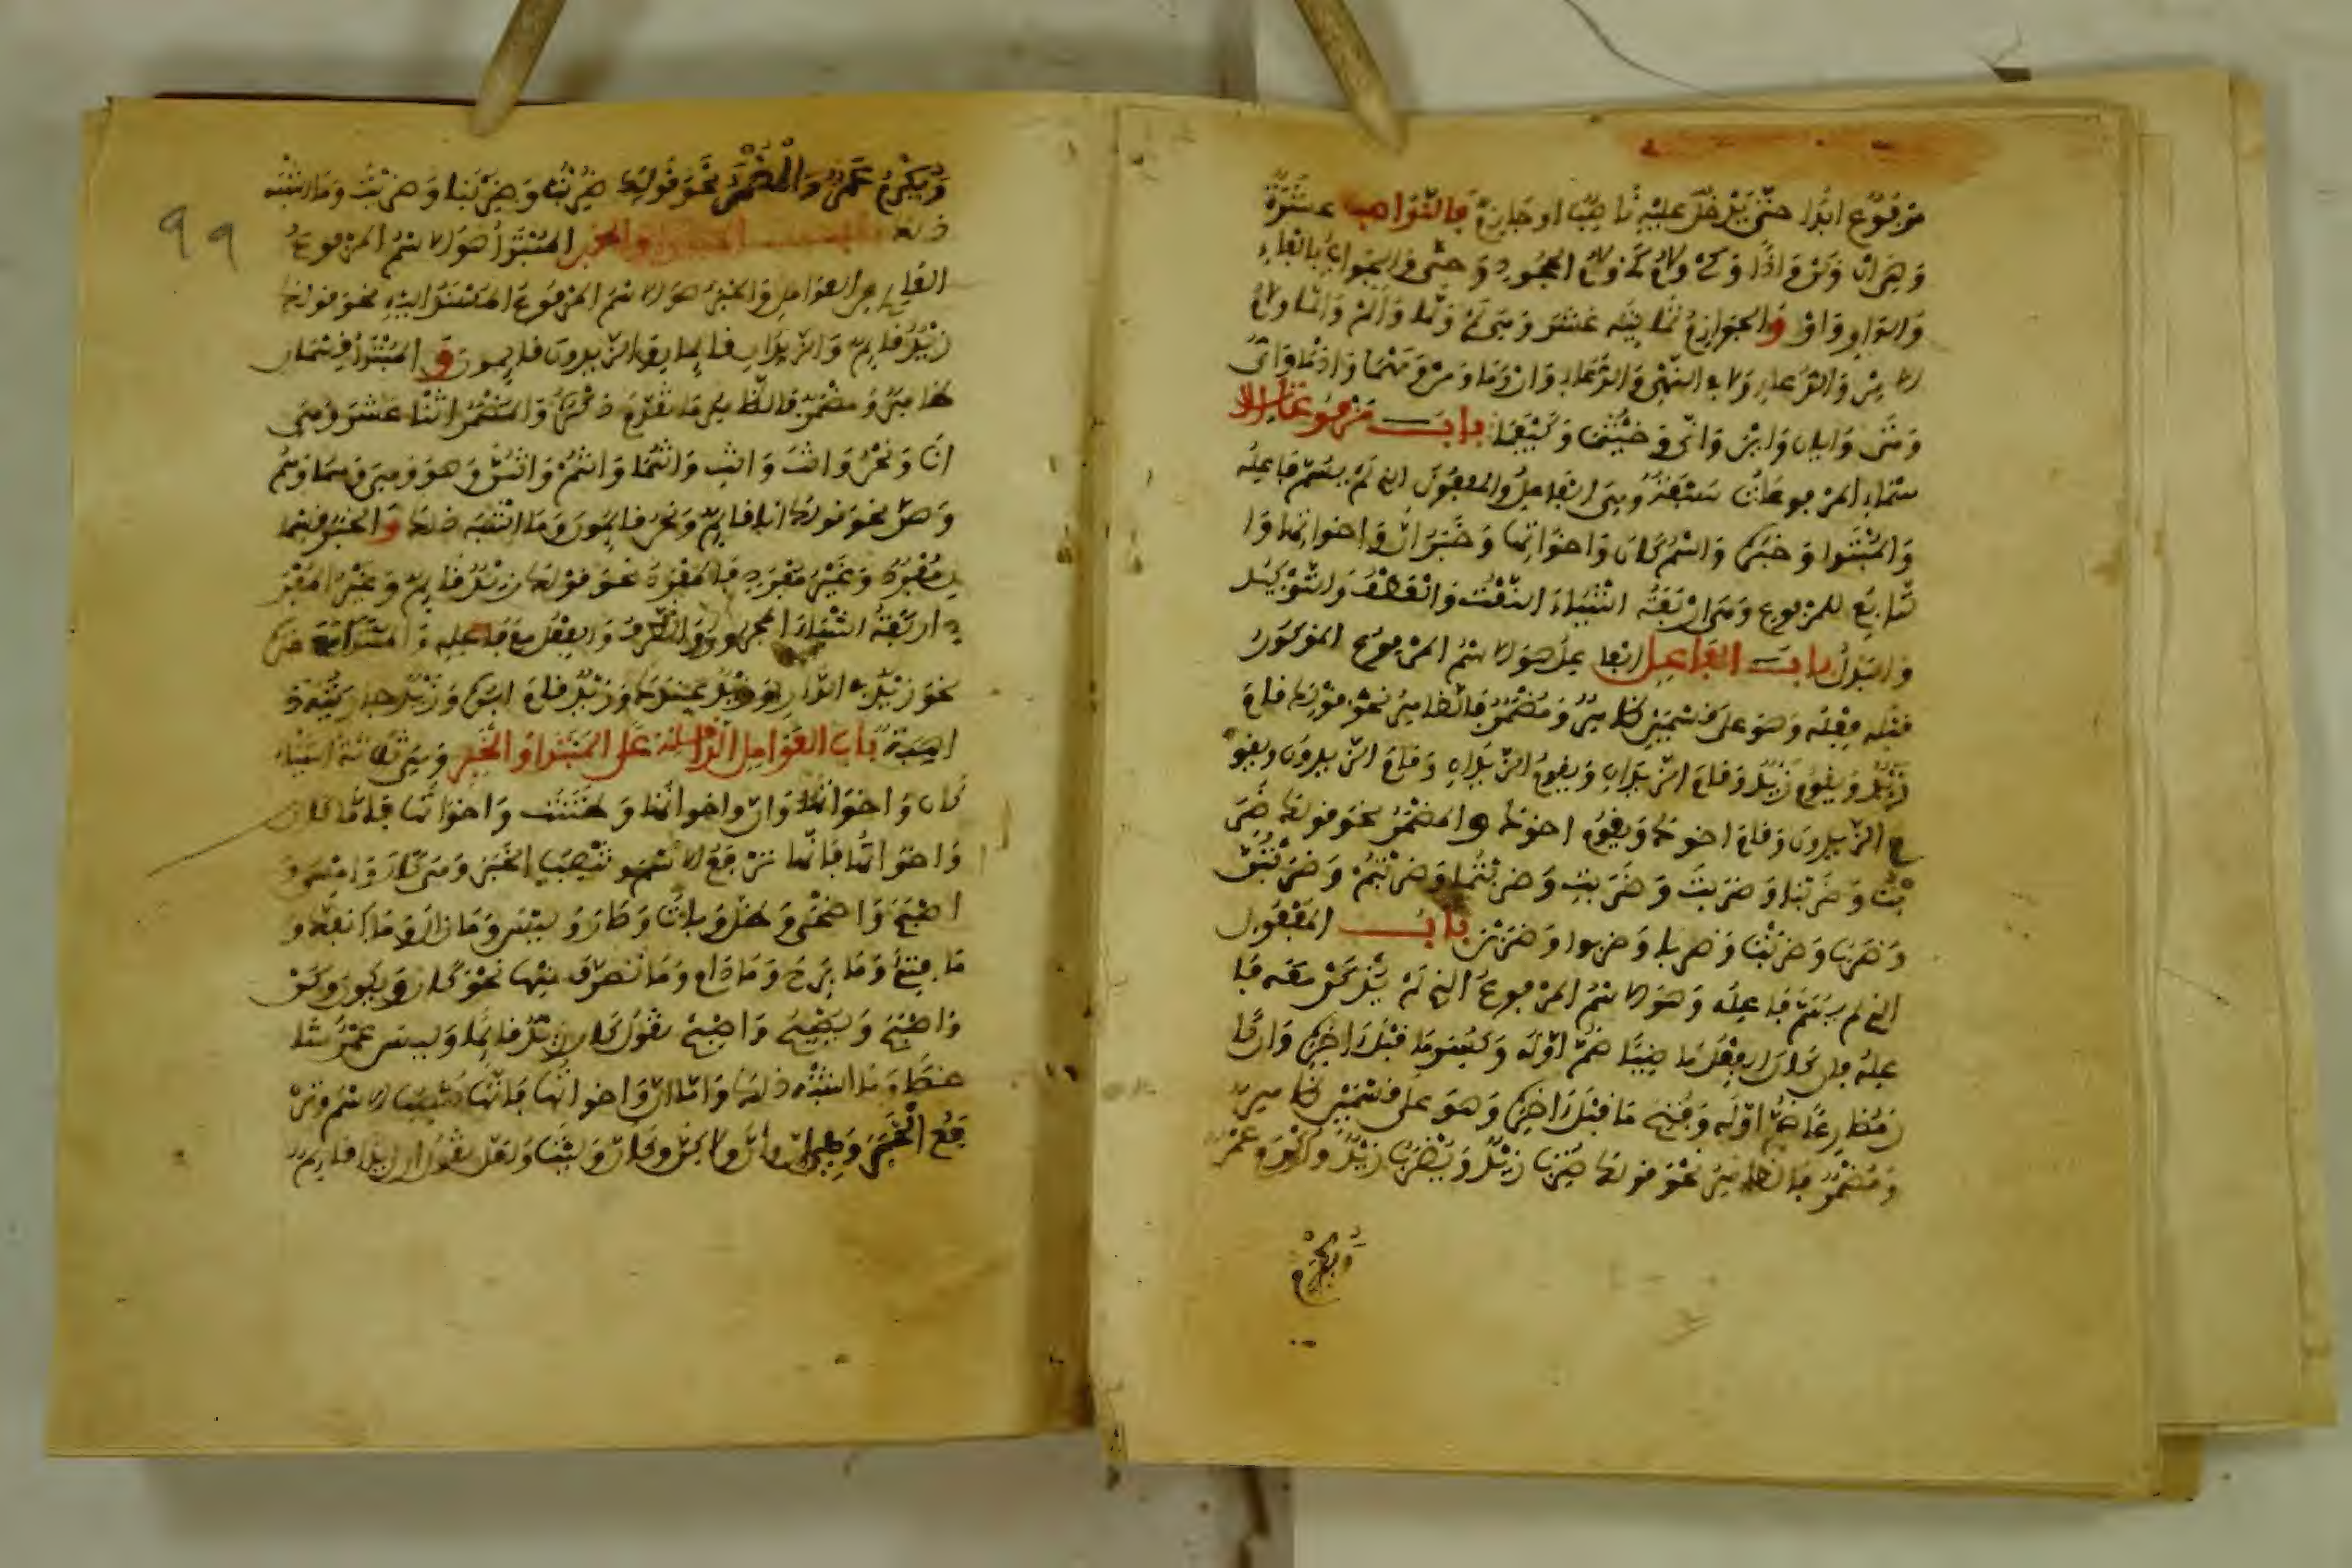 مرفوع ابدا حتى يدخل عليه ناصب او جازم فالنواصب عشرة
وهي ان ولن واذا وكي ولام كي ولام الجحود وحتى والجواب بالفاء
والواو واو والجوازم ثمانية عشر وهي لم ولما والم والما ولام
الامر والدعاء ولا في النهي والدعاء وان وما ومن ومهما واذما واي
ومتى وايان واين وانى وحيثما وكيفما باب مرفوعات الا
سماء المرفوعات سبعة وهي الفاعل والمفعول الذي لم يسم فاعله
والمبتدا وخبره واسم كان واخواتها وخبر ان واخواتها وا
لتابع للمرفوع وهي اربعة اشياء النعت والعطف والتوكيد
والبدل باب الفاعل الفاعل هو الاسم المرفوع المذكور
قبله فعله وهو على قسمين ظاهر ومضمر فالظاهر نحو قولك قام
زيد ويقوم زيد وقام الزيدان ويقوم الزيدان وقام الزيدون ويقو
م الزيدون وقام اخوك ويقوم اخوك والمضمر نحو قولك ضر
بت وضربنا وضربت وضربت وضربتما وضربتم وضربتن
وضرب وضربت وضربا وضربوا وضربن باب المفعول
الذي لم يسم فاعله وهو الاسم المرفوع الذي لم يذكر معه فا
عله فان كان الفعل ماضيا ضم اوله وكسر ما قبل اخره وان كا
ن مضارعا ضم اوله وفتح ما قبل اخره وهو على قسمين ظاهر
ومضمر فالظاهر نحو قولك ضرب زيد ويضرب زيد واكرم عمر
ويكرم
ويكرم عمر والمضمر نحو قولك ضربت وضربنا وضربت وما اشبه
ذلك باب المبتدا والخبر المبتدا هو الاسم المرفوع
العاري عن العوامل والخبر هو الاسم المرفوع المسند اليه نحو قولك
زيد قايم والزيدان قايمان والزيدون قايمون والمبتدا قسمان
ظاهر ومضمر فالظاهر ما تقدم ذكره والمضمر اثنا عشر وهي
انا ونحن وانت وانت وانتما وانتم وانتن وهو وهي وهما وهم
وهن نحو قولك انا قايم ونحن قايمون وما اشبه ذلك والخبر قسما
ن مفرد وغير مفرد فالمفرد نحو قولك زيد قايم وغير المفر
د اربعة اشياء المجرور والظرف والفعل مع فاعله والمبتدا مع خبره
نحو زيد في الدار وزيد عندك وزيد قام ابوه وزيد جاريته ذ
اهبة باب العوامل الداخلة على المبتدا والخبر وهي ثلاثة اشياء
كان واخواتها وان واخواتها وظننت واخواتها فاما كان
واخواتها فانها ترفع الاسم وتنصب الخبر وهي كان وامسى و
اصبح واضحى وظل وبات وصار وليس وما زال وما انفك و
ما فتئ وما برح وما دام وما تصرف منها نحو كان ويكون وكن
واصبح ويصبح واصبح تقول كان زيد قايما وليس عمر شا
خصا وما اشبه ذلك واما ان واخواتها فانها تنصب الاسم وتر
فع الخبر وهي ان وان ولكن وكان وليت ولعل تقول ان زيدا قايم
99